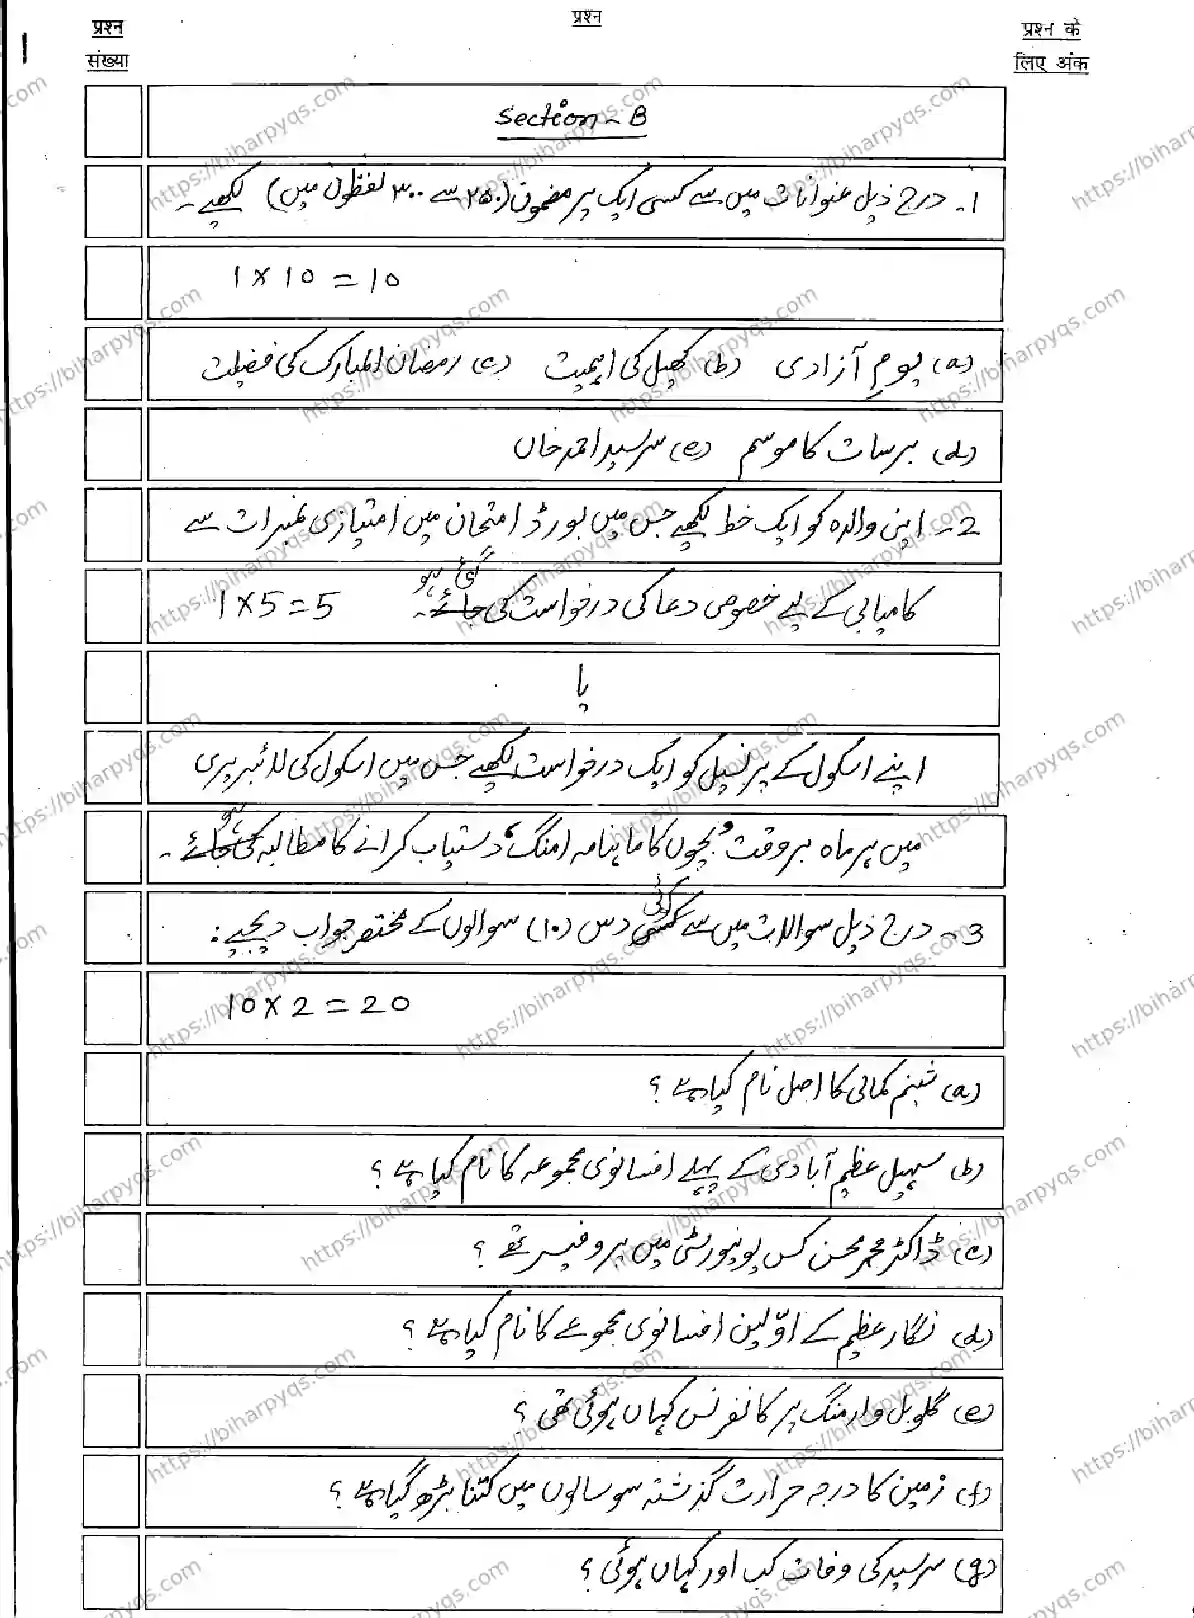 प्रश्न
संख्या
प्रश्न
प्रश्न के
लिए अंक
Section - B
1۔ درج ذیل عنوانات میں سے کسی ایک پر مضمون (۲۵۰ سے ۳۰۰ لفظوں میں) لکھیے ۔
1 × 10 = 10
(a) یومِ آزادی (b) کھیل کی اہمیت (c) رمضان المبارک کی فضیلت
(d) برسات کا موسم (e) سرسید احمد خاں
2۔ اپنی والدہ کو ایک خط لکھیے جس میں بورڈ امتحان میں امتیازی نمبرات سے
کامیابی کے لیے خصوصی دعا کی درخواست کی گئی ہو ۔ 1 × 5 = 5
یا
اپنے اسکول کے پرنسپل کو ایک درخواست لکھیے جس میں اسکول کی لائبریری
میں ہر ماہ بروقت 'بچوں کا ماہنامہ امنگ' دستیاب کرانے کا مطالبہ ہو ۔
3۔ درج ذیل سوالات میں سے کوئی دس (۱۰) سوالوں کے مختصر جواب دیجیے :
10 × 2 = 20
(a) شبنم کمالی کا اصل نام کیا ہے ؟
(b) سہیل عظیم آبادی کے پہلے افسانوی مجموعہ کا نام کیا ہے ؟
(c) ڈاکٹر محمد محسن کس یونیورسٹی میں پروفیسر تھے ؟
(d) نگار عظیم کے اوّلین افسانوی مجموعے کا نام کیا ہے ؟
(e) گلوبل وارمنگ پر کانفرنس کہاں ہوئی تھی ؟
(f) زمین کا درجہ حرارت گذشتہ سو سالوں میں کتنا بڑھ گیا ہے ؟
(g) سرسید کی وفات کب اور کہاں ہوئی ؟
https://biharpyqs.com